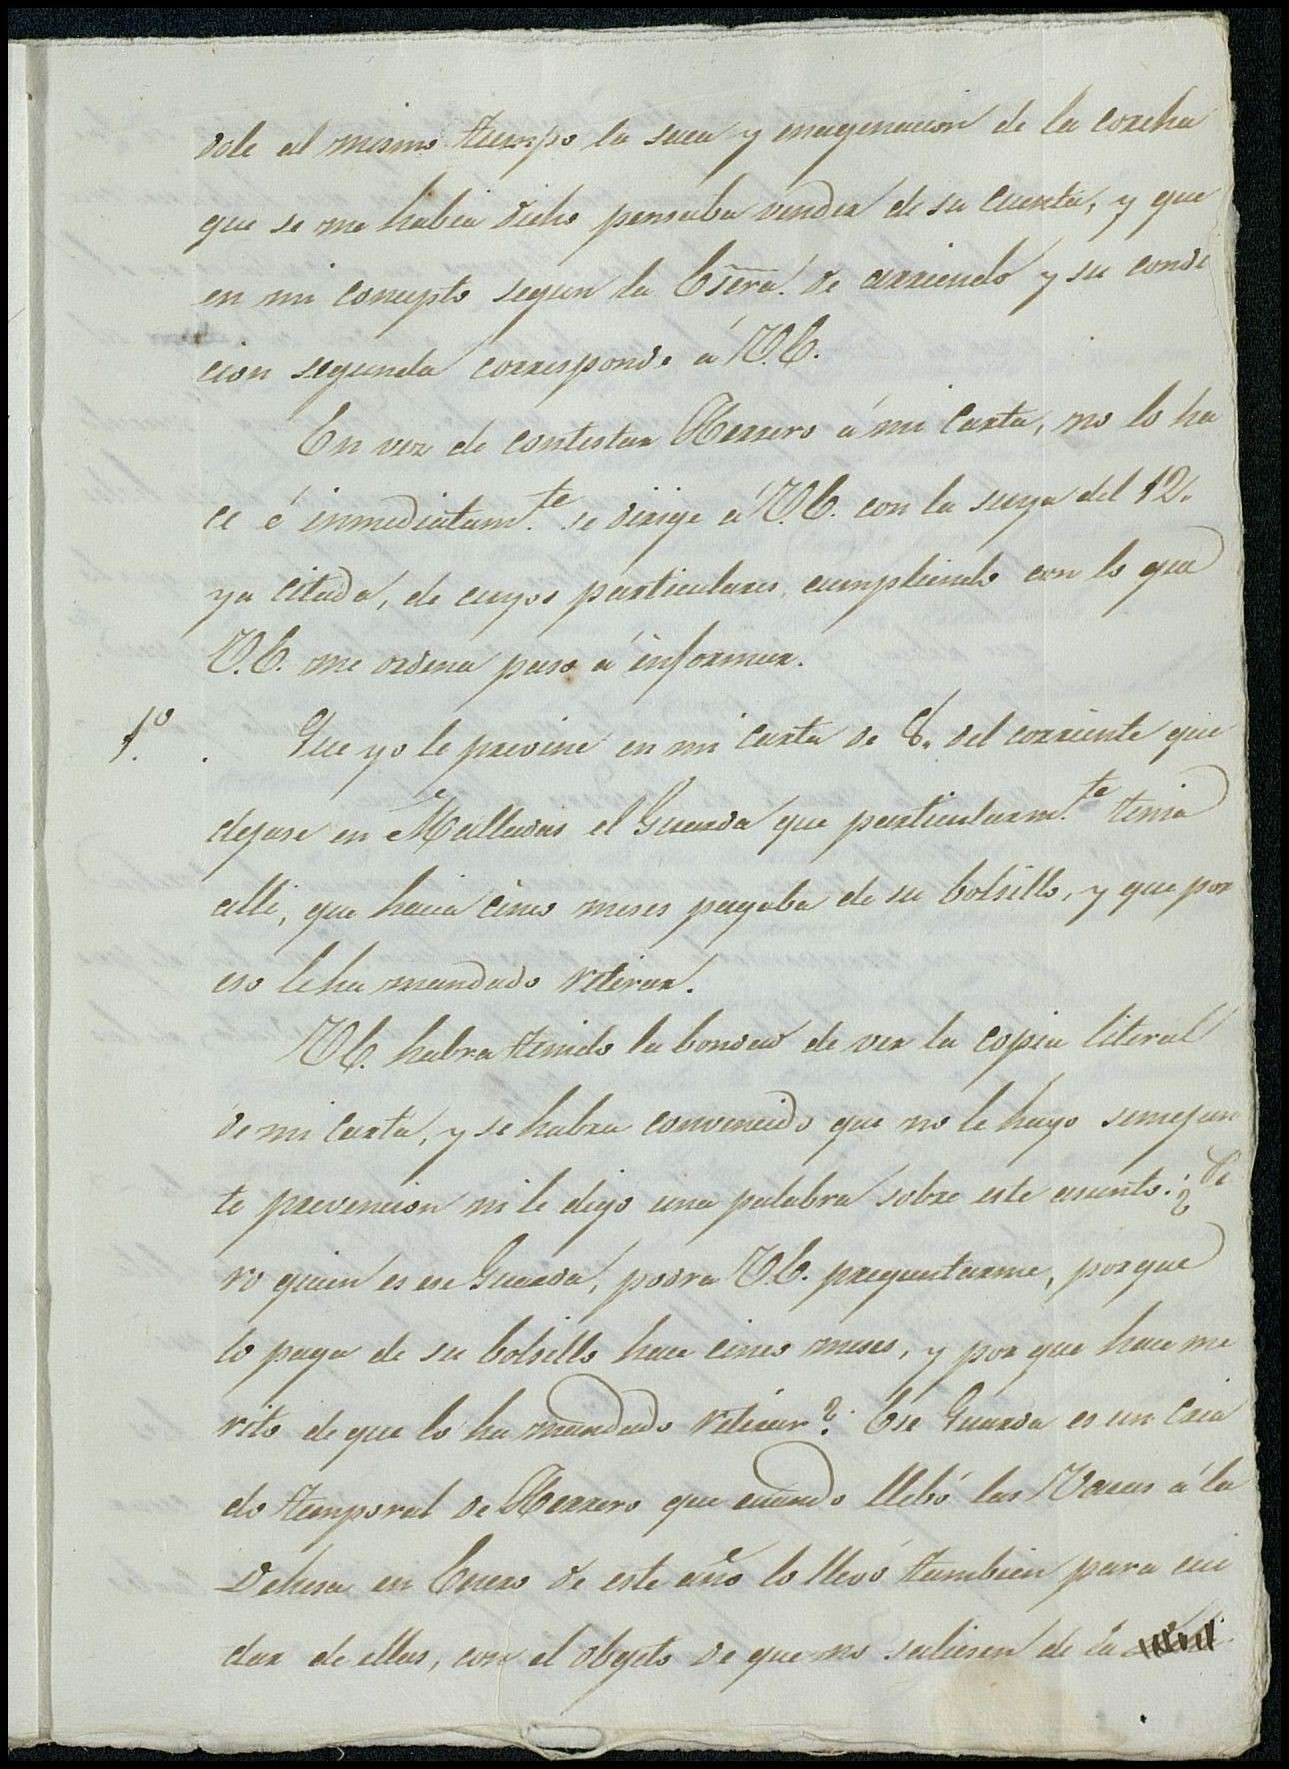 dole al mismo tiempo la saca y enagenacion de la corcha
que se me habia dicho pensaba vender de su cuenta, y que
en mi concepto segun la Esĉra. de arriendo y su condi
cion segunda corresponde á V.E.
En vez de contestar Herrero á mi carta, no lo ha
ce é inmediatam.te se dirige á V.E. con la suya del 12.
ya citada, de cuyos particulares, cumpliendo con lo que
V.E. me ordena paso á informar.
1.º Que yo le previne en mi carta de 8. del corriente que
dejase en Malladas el Guarda que particularm.te tenia
alli, que hacia cinco meses pagaba de su bolsillo, y que por
eso le ha mandado retirar.
V.E. habra tenido la bondad de ver la copia literal
de mi carta, y se habra convencido que no le hago semejan
te prevencion ni le digo una palabra sobre este asunto. ¿Pe
ro quien es ese Guarda, podra V.E. preguntarme, porque
lo paga de su bolsillo hace cinco meses, y por que hace me
rito de que lo ha mandado retirar? Ese Guarda es un cria
do temporal de Herrero que cuando llebó las Vacas á la
Dehesa en Enero de este año lo llevó tambien para cui
dar de ellas, con el objeto de que no saliesen de la